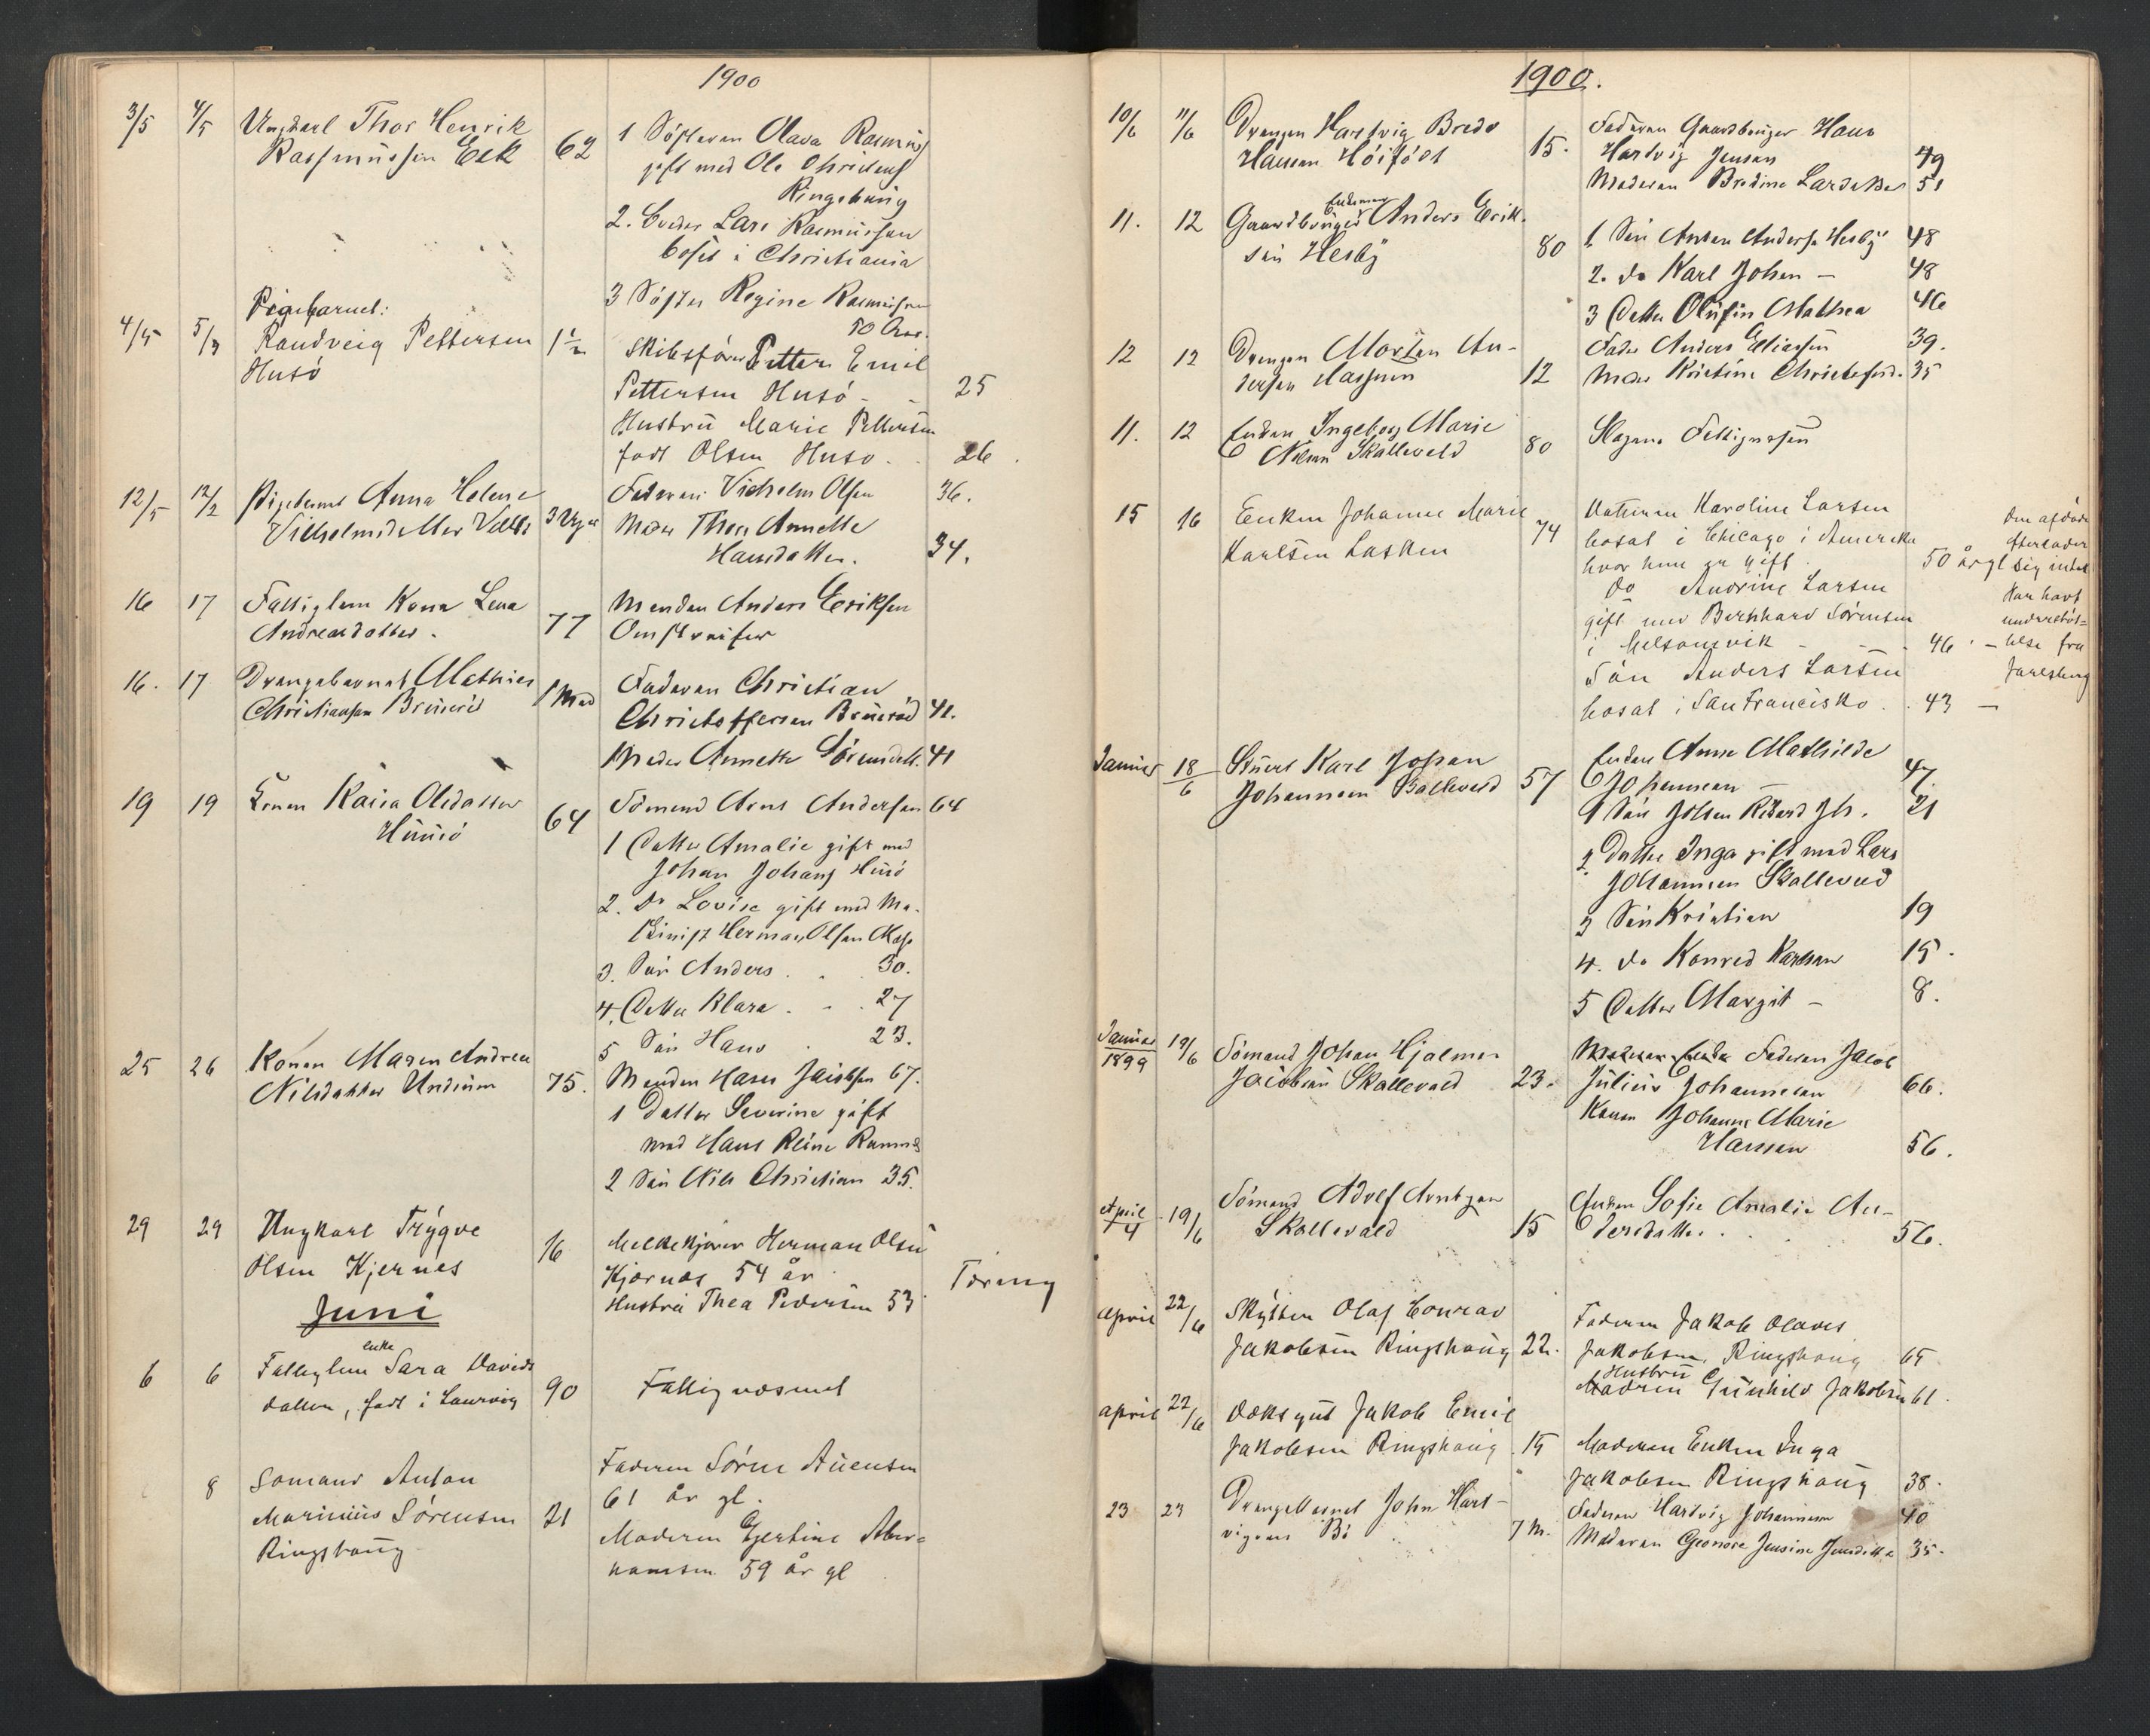 1900
3/5 4/5 Ungkarl Thor Henrik
Rasmussen Eek 62
1 Søsteren Olava Rasmus
gift med Ole Christens
Ringshaug
2. Broder Lars Rasmussen
bosat i Christiania
3 Søster Regine Rasmussen
50 Aar.
Pigebarnet:
4/5 5/5 Randveig Pettersen 1½
Husö
Skibsfører Petter Emil
Pettersen Husö - - 25
Hustru Marie Pettersen
født Olsen Husø . . 26
12/5 12/5 Pigebarnet Anna Helene
Vilhelmsdatter 3 Uger
Faderen Vilhelm Olsen 36.
Moder Thea Annette
Hansdatter. 34.
16 17 Fattiglem Karen Lena
Andreasdatter . 77
Manden Anders Eriksen
Omstreifer
16. 17 Drengebarnet Mathias
Christiansen 1 Mnd
Faderen Christian
Christoffersen 41.
Moder Annette Sørensdatt. 41
19 19 Konen Olsdatter
Husö 64
Sömand Arnt Andersen 64
1 Datter Amalie gift med
Johan Johans Husö
2. Do Lovise gift med Ma-
skinist Herman Olsen
3. Søn Anders . . 30.
4. Datter Klara . . 27
5 Søn Hans . 23.
25 26 Konen Maren Andrea
Nilsdatter Undrum 75.
Manden Hans Jacobsen 67.
1 Datter Severine gift
med Hans
2 Søn Nils Christian 35.
29 29 Ungkarl Trygve
Olsen Kjernes 16
Melkekjører Herman Olsen
Kjærnes 54 år
Hustru Thea Pedersen 53
Tæring
Juni
enke
6 6 Fattiglem Sara Davids
datter, født i Laurvig 90
Fattigvæsenet
8 Sømand Anton
Marinius Sørensen 21
Ringshaug
Faderen Sørен
61 år gl.
Moderen Gjertine Abra=
hamsen 59 år gl
1900.
10/6 11/6 Drengen Hartvig Bredo
Hansen 15.
Faderen Gaardbruger Hans
Hartvig Jensen 49
Moderen Bredine Larsdatter 51
Enkemand
11. 12 Gaardbruger Anders Erik-
sen Hesby 80
1. Søn Anton Anders. Hesby 48
2. do Karl Johan — 48
3 Datter Olufine Mathea 46
12 12 Drengen Morten An-
dersen 12
Fader Anders Eliassen 39.
Moder Kristine Christofersd. 35
11. 12 Enken Ingeborg Marie
Nilsen Skallevold 80
Slagens Fattigvæsen
15 16 Enken Johanne Marie
Karlsen Lasken 74
Datteren Karoline Larsen
bosat i Chicago i Amerika
hvor hun er gift . 50 år gl
do Andrine Larsen
gift med Bernhard Sørensen
i Melsomvik - - - 46 . —
Søn Anders Larsen
bosat i San Francisko . . 43 —
Den afdøde
efterlader
sig intet
Har havt
understøt=
telse fra
Jarlsberg
Januar 18/6 Karl Johan
Johannesen 57
Enken Anne Mathilde
Johannesen — 47.
1 Søn Johan Rikard Joh. 21
2 Datter Inga gift med Lars
Johannesen Skallevold
3 Søn Kristian 19
4. do Konrad Karlsen 15.
5 Datter Margit — 8.
Januar 1899 19/6 Sömand Johan Hjalmar
Jacobsen Skallevold 23.
Faderen Jacob
Julius Johannesen 66.
Konen Johanne Marie
Hansen 56.
April/4 19/6 Sömand Adolf Arntzen
Skallevold 15
Enken Sofie Amalie An-
dersdatter . . 56.
april 22/6 Skytter Olaf Conrad
Jakobsen Ringshaug 22.
Faderen Jakob Olaves
Jakobsen, Ringshaug 65
Hustru
Gunhild Jakobsen 61.
april 22/6 Dæksgut Jakob Emil
Jakobsen Ringshaug 15
Moderen Enken Inga
Jakobsen Ringshaug 38.
23 23 Drengebarnet John Hart-
vigsen Bø 7 M.
Faderen Hartvig Johannesen 40
Moderen Jensine 35.